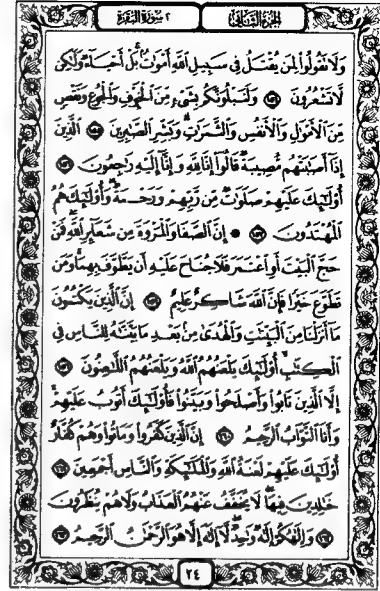 الجزء الثاني ٢ سورة البقرة
وَلَا تَقُولُوا لِمَن يُقْتَلُ فِي سَبِيلِ اللَّهِ أَمْوَٰتٌۢ بَلْ أَحْيَآءٌ وَلَٰكِن
لَّا تَشْعُرُونَ ١٥٤ وَلَنَبْلُوَنَّكُم بِشَىْءٍ مِّنَ الْخَوْفِ وَالْجُوعِ وَنَقْصٍ
مِّنَ الْأَمْوَٰلِ وَالْأَنفُسِ وَالثَّمَرَٰتِ وَبَشِّرِ الصَّٰبِرِينَ ١٥٥ الَّذِينَ
إِذَآ أَصَٰبَتْهُم مُّصِيبَةٌ قَالُوٓا إِنَّا لِلَّهِ وَإِنَّآ إِلَيْهِ رَٰجِعُونَ ١٥٦
أُو۟لَٰٓئِكَ عَلَيْهِمْ صَلَوَٰتٌ مِّن رَّبِّهِمْ وَرَحْمَةٌ وَأُو۟لَٰٓئِكَ هُمُ
الْمُهْتَدُونَ ١٥٧ ۞ إِنَّ الصَّفَا وَالْمَرْوَةَ مِن شَعَآئِرِ اللَّهِ فَمَنْ
حَجَّ الْبَيْتَ أَوِ اعْتَمَرَ فَلَا جُنَاحَ عَلَيْهِ أَن يَطَّوَّفَ بِهِمَا وَمَن
تَطَوَّعَ خَيْرًا فَإِنَّ اللَّهَ شَاكِرٌ عَلِيمٌ ١٥٨ إِنَّ الَّذِينَ يَكْتُمُونَ
مَآ أَنزَلْنَا مِنَ الْبَيِّنَٰتِ وَالْهُدَىٰ مِنۢ بَعْدِ مَا بَيَّنَّٰهُ لِلنَّاسِ فِي
الْكِتَٰبِ أُو۟لَٰٓئِكَ يَلْعَنُهُمُ اللَّهُ وَيَلْعَنُهُمُ اللَّٰعِنُونَ ١٥٩
إِلَّا الَّذِينَ تَابُوا وَأَصْلَحُوا وَبَيَّنُوا فَأُو۟لَٰٓئِكَ أَتُوبُ عَلَيْهِمْ
وَأَنَا التَّوَّابُ الرَّحِيمُ ١٦٠ إِنَّ الَّذِينَ كَفَرُوا وَمَاتُوا وَهُمْ كُفَّارٌ
أُو۟لَٰٓئِكَ عَلَيْهِمْ لَعْنَةُ اللَّهِ وَالْمَلَٰٓئِكَةِ وَالنَّاسِ أَجْمَعِينَ ١٦١
خَٰلِدِينَ فِيهَا لَا يُخَفَّفُ عَنْهُمُ الْعَذَابُ وَلَا هُمْ يُنظَرُونَ
١٦٢ وَإِلَٰهُكُمْ إِلَٰهٌ وَٰحِدٌ لَّآ إِلَٰهَ إِلَّا هُوَ الرَّحْمَٰنُ الرَّحِيمُ ١٦٣
٢٤